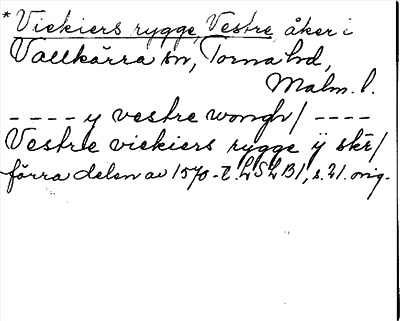 * Vickiers rygge, Vestre åker i
Vallkärra sn, Torna hd,
Malm. l.
---- y vestre wongh/ ----
Vestre vickiers rygge ÿ skē/
förra delen av 1570-t. LSLB1, s. 21. orig.